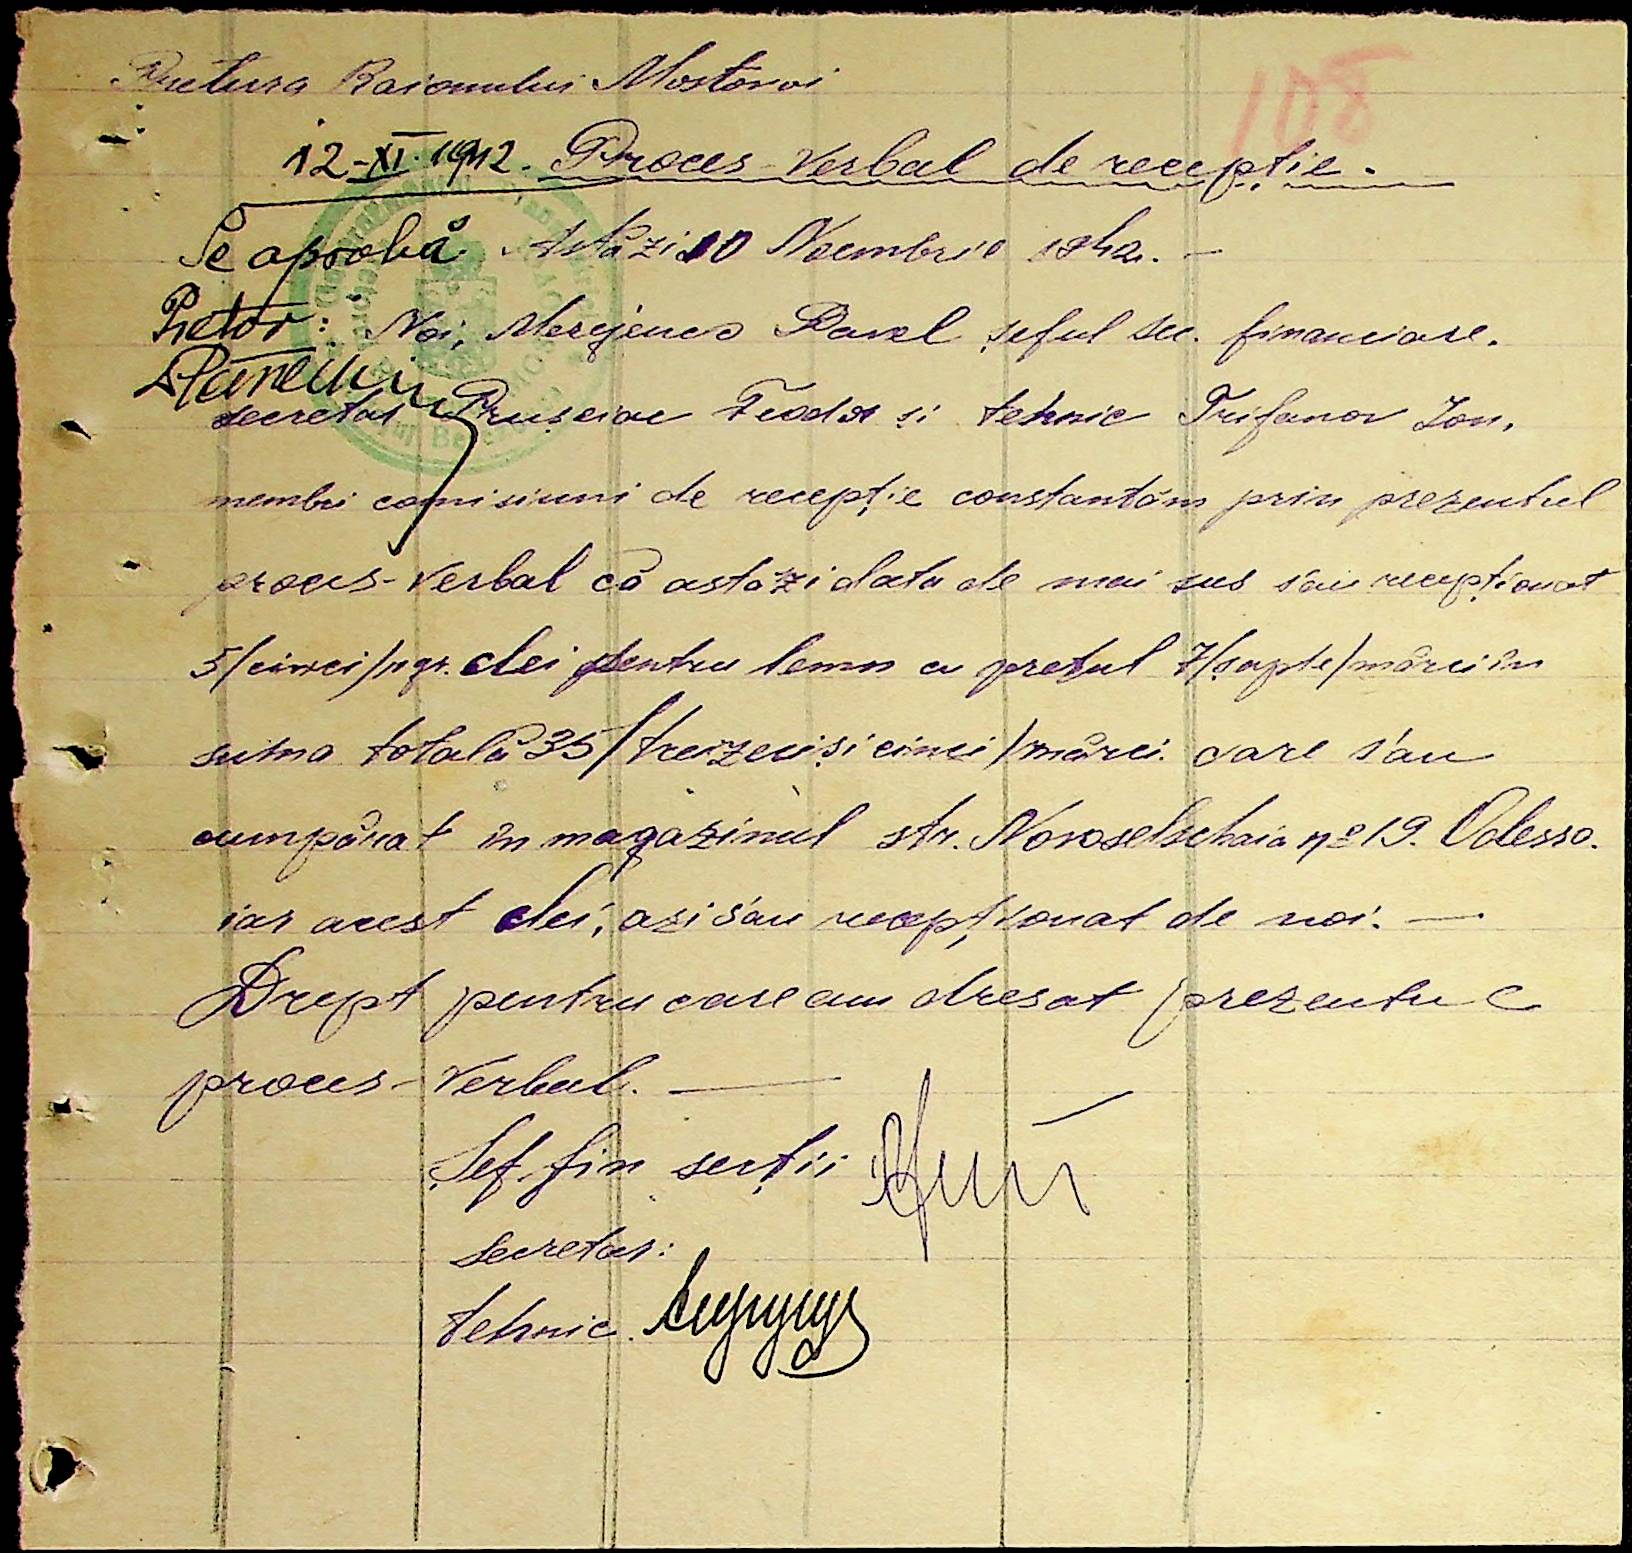 Pretura Raionului Mostovoi
108
12-XI-1942. Proces-Verbal de recepție.
Se aprobă Astăzi 10 Noembrie 1942. -
Pretor: Noi, Merejenco Pavel șeful sec. financiare.
secretar Prușciac Feodor și tehnic Trifanov Ion,
membri comisiuni de recepție constantăm prin prezentul
proces-verbal că astăzi data de mai sus s'au recepționat
5/cinci/kgr. clei pentru lemn cu prețul 7/șapte/mărci în
suma totală 35/treizeci și cinci/mărci. care s'au
cumpărat în magazinul str. Novoselschaia № 19. Odessa.
iar acest clei, azi s'au recepționat de noi. —
Drept pentru care am dresat prezentul
proces-Verbal. —
Șef fin secții
Secretar:
tehnic.